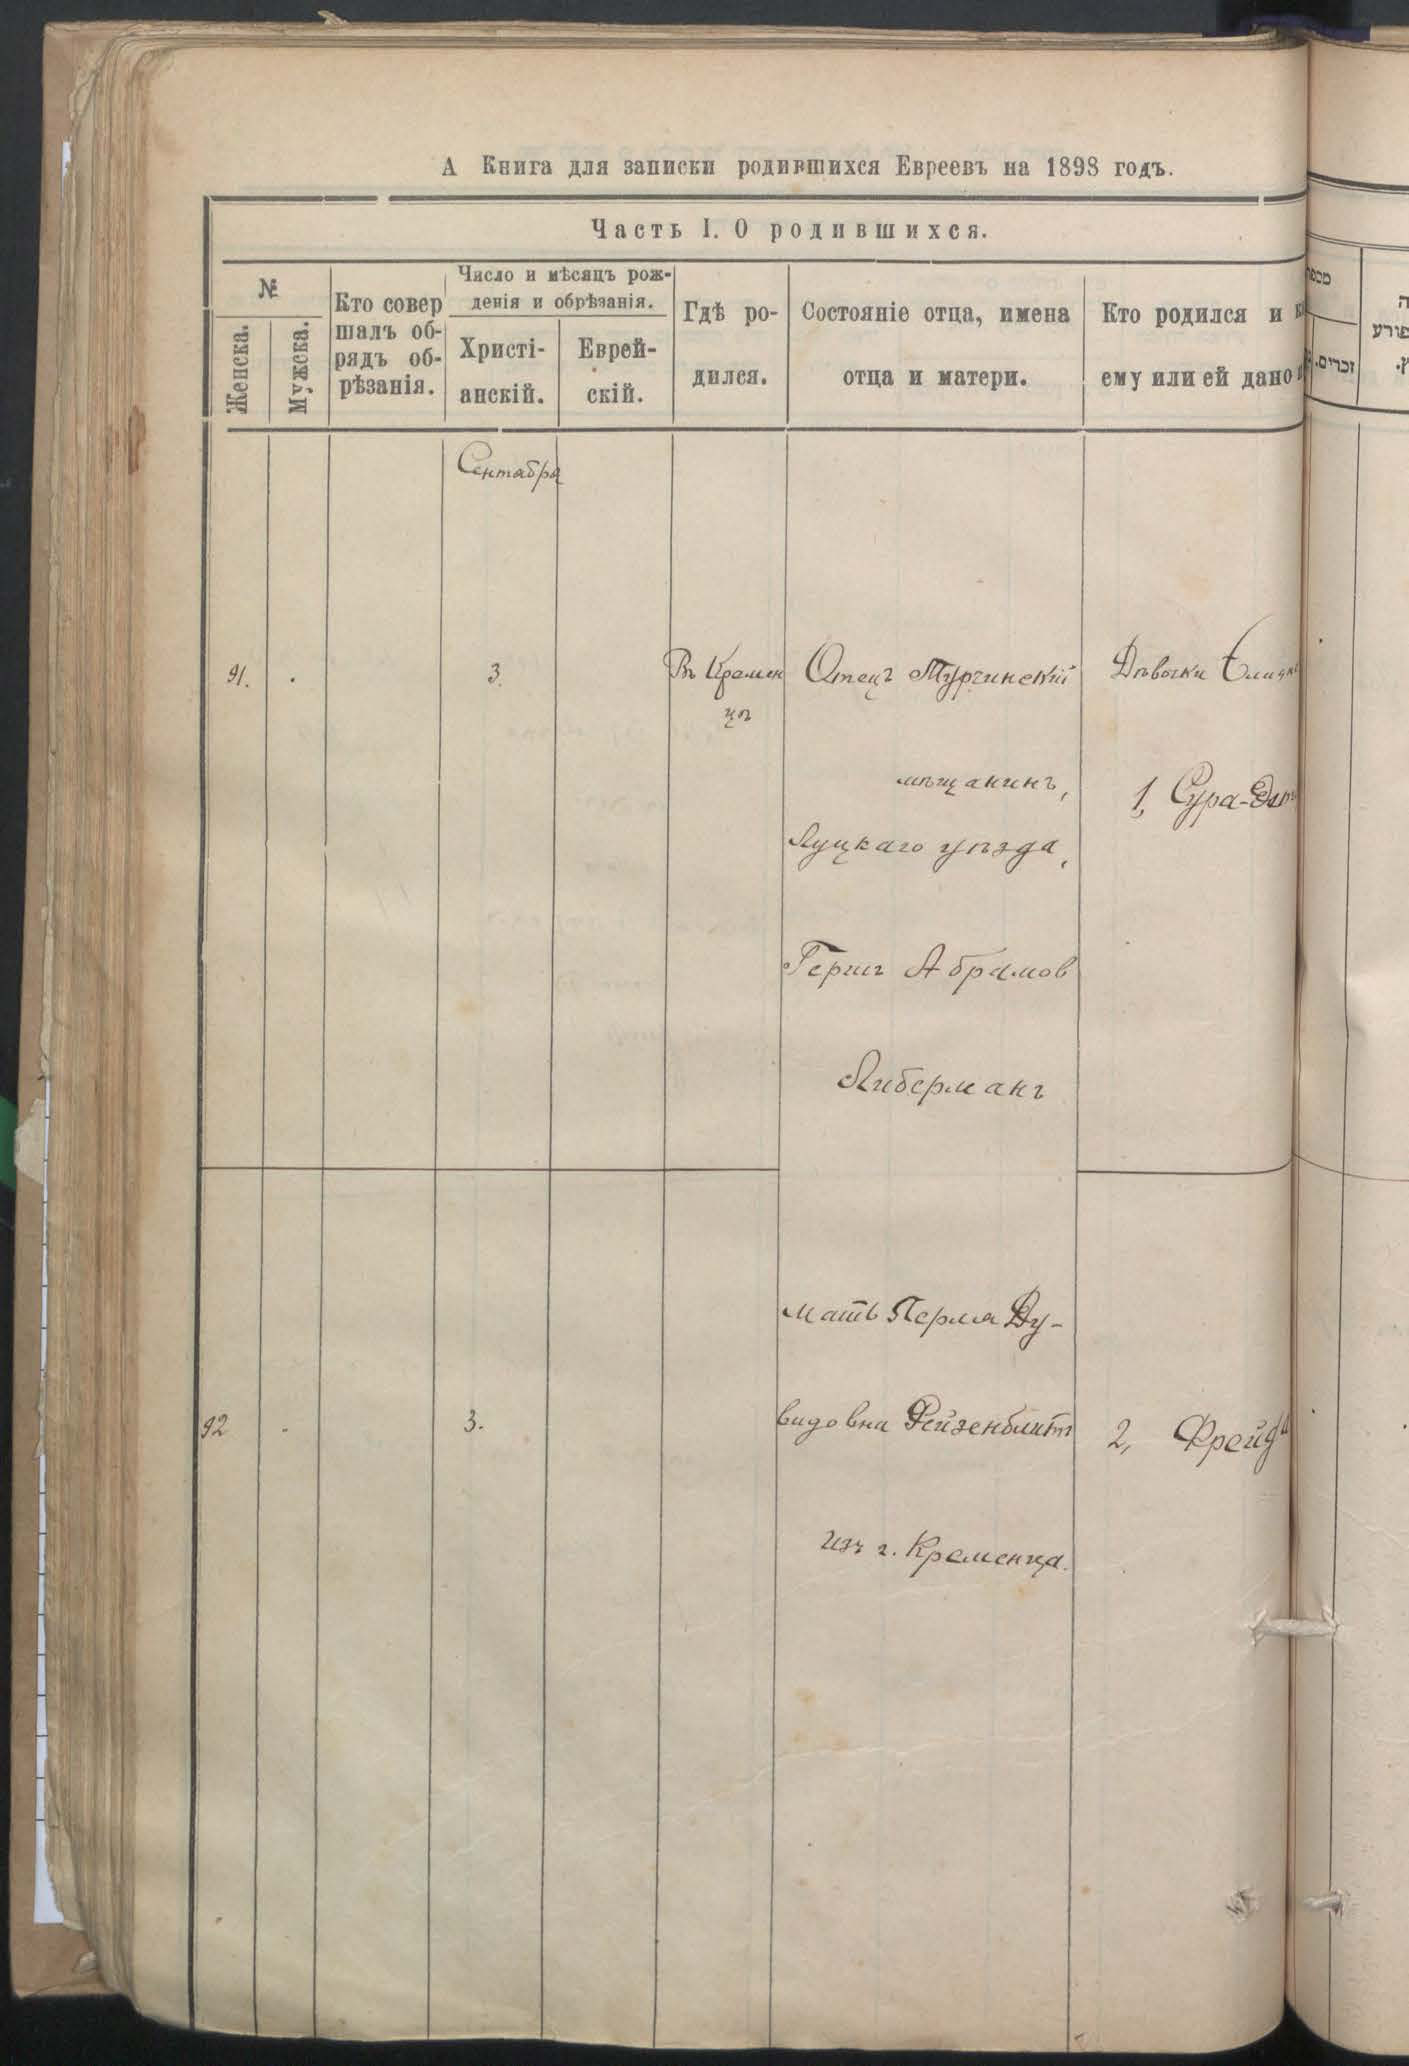 А Книга для записки родившихся Евреевъ на 1898 годъ.
Часть I. О родившихся.
№
Женска.
Мужска.
Кто совер
шалъ об-
рядъ об-
рѣзанія.
Число и мѣсяцъ рож-
денія и обрѣзанія.
Христі-
анскій.
Еврей-
скій.
Гдѣ ро-
дился.
Состояніе отца, имена
отца и матери.
Кто родился и
ему или ей дано
זכרים.
Сентября
91.
3.
Въ Кремен
цѣ
Отецъ Турчинскій
мѣщанинъ,
Луцкаго уѣзда,
Гершъ Абрамов
Либерманъ
Дѣвочки
1, Сура-
92
3.
мать Перля Ду-
видовна Рейзенблитъ
изъ г. Кременца.
2, Фрейда